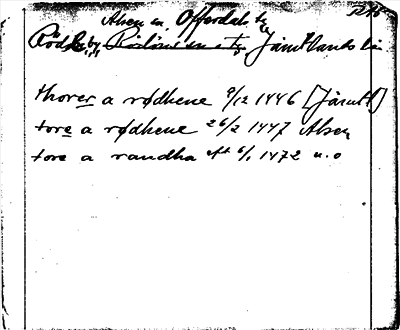 Alsen sn Offerdals tg
Rödeby Jämtlands län
thorer a rødhene 9/12 1446 [Jämtl]
tore a rødhene 26/2 1447 Alsen
tore a raudha At 6/1 1472 u.o